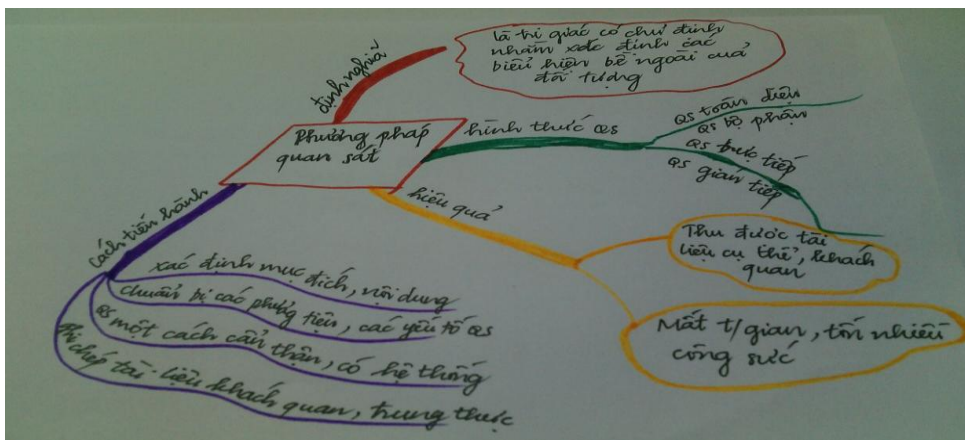 Phương pháp
quan sát
định nghĩa
là tri giác có chủ định
nhằm xác định các
biểu hiện bề ngoài của
đối tượng
hình thức QS
QS toàn diện
QS bộ phận
QS trực tiếp
QS gián tiếp
hiệu quả
Thu được tài
liệu cụ thể, khách
quan
Mất t/gian, tốn nhiều
công sức
Cách tiến hành
xác định mục đích, nội dung
chuẩn bị các phương tiện, các yếu tố QS
QS một cách cẩn thận, có hệ thống
ghi chép tài liệu khách quan, trung thực